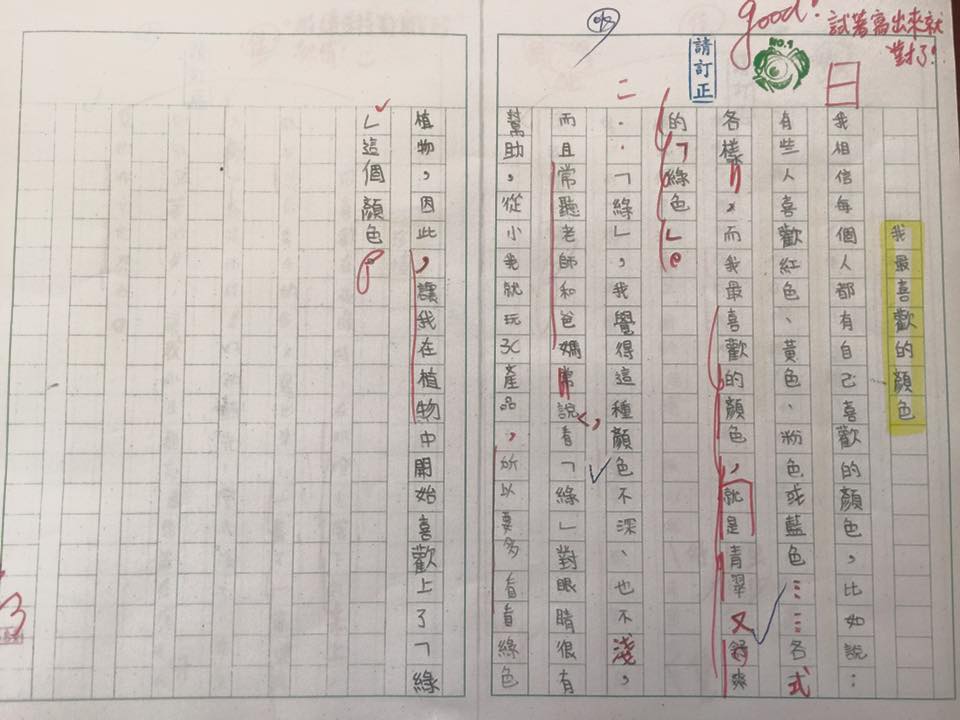 good!
試著寫出來就
對了!
NO.1
請訂正
我最喜歡的顏色
我相信每個人都有自己喜歡的顏色，比如說：
有些人喜歡紅色、黃色、粉色或藍色……各式
各樣，而我最喜歡的顏色，就是青翠又舒爽
的「綠色」。
「綠」，我覺得這種顏色不深、也不淺，
而且常聽老師和爸媽常說，看「綠」對眼睛很有
幫助，從小我就玩3C產品，所以要多看看綠色
植物，因此，讓我在植物中開始喜歡上了「綠
」這個顏色。